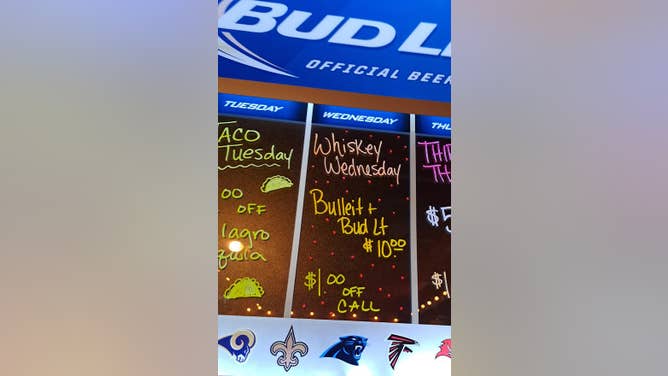 BUD LI
OFFICIAL BEER
TUESDAY
TACO
Tuesday
00
OFF
lagro
WEDNESDAY
Whiskey
Wednesday
Bulleit +
Bud Lt
$10.00
$1.00
OFF
CALL
THU
THI
TH
$5
$